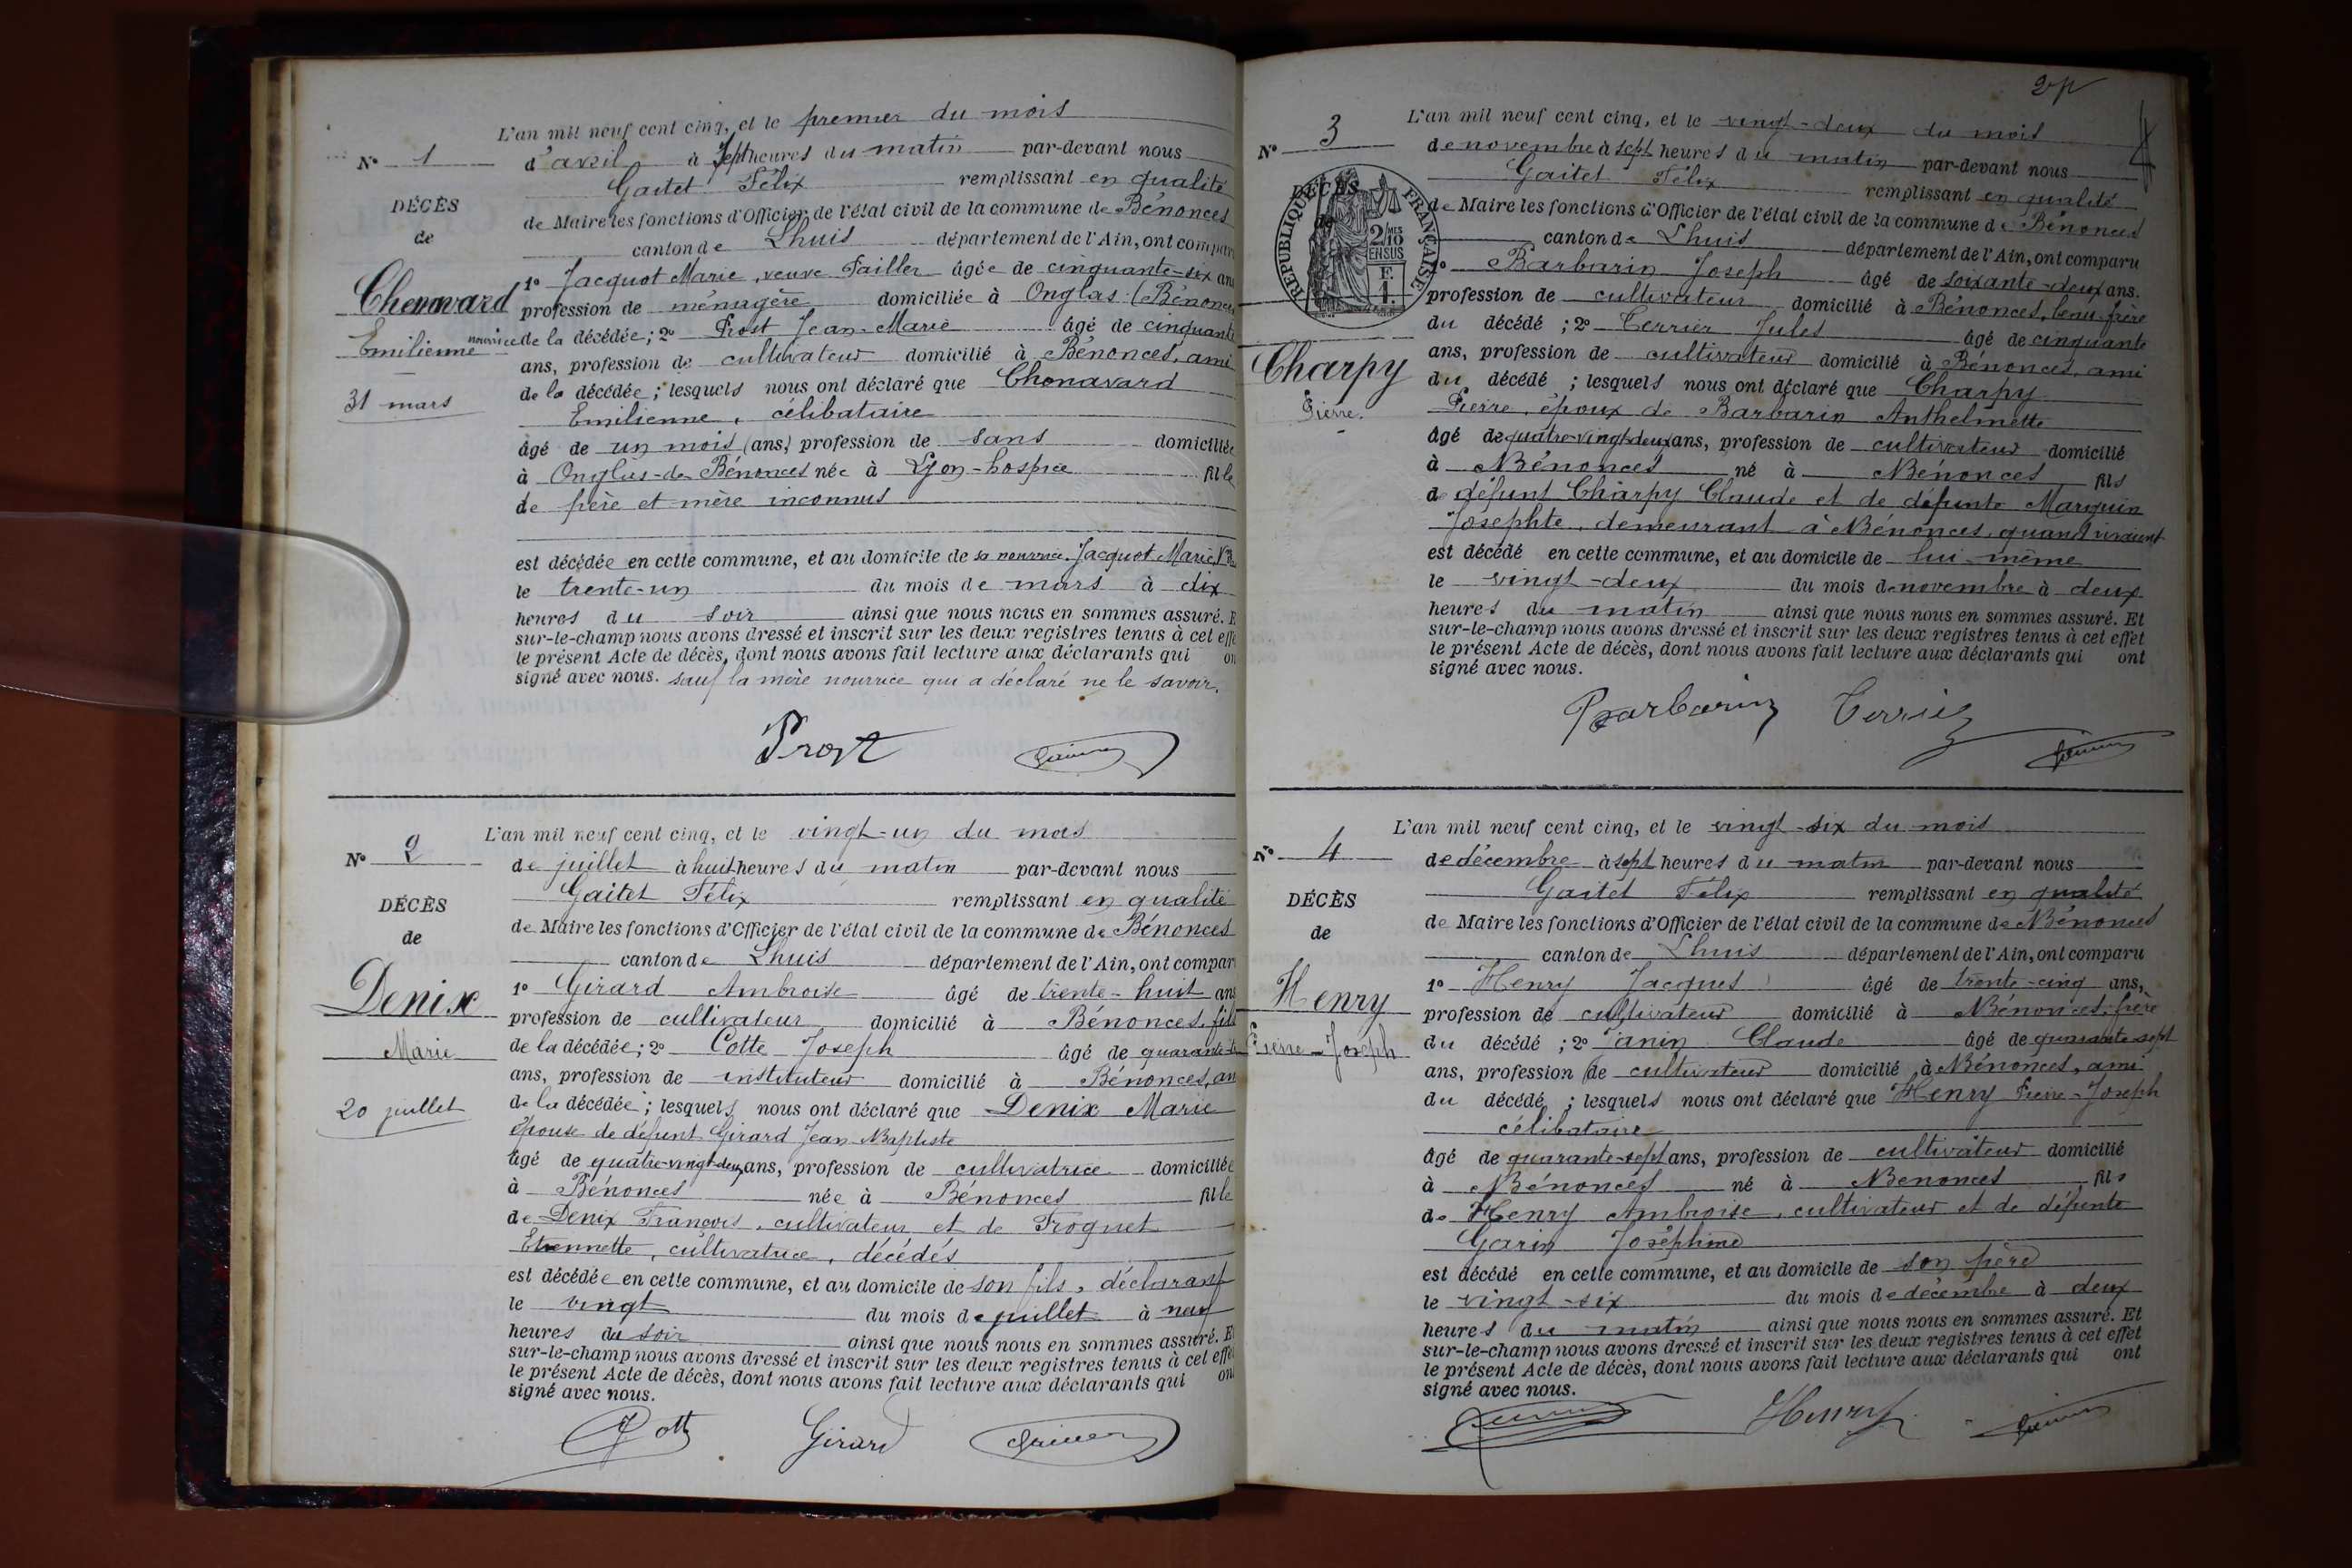 L'an mil neuf cent cinq, et le premier du mois
N° 1
d'avril à sept heures du matin par-devant nous
Gaitet Félix remplissant en qualité
DÉCÈS
de Maire les fonctions d'Officier de l'état civil de la commune de Bénonces
de
canton de Lhuis département de l'Ain, ont compar
1° Jacquot Marie, veuve Failler âgée de cinquante-six ans
Chenavard
profession de ménagère domiciliée à Onglas (Bénonces
Emilienne
nourrice de la décédée; 2° Prost Jean-Marie âgé de cinquante
ans, profession de cultivateur domicilié à Bénonces, ami
31 mars
de la décédée; lesquels nous ont déclaré que Chenavard
Emilienne, célibataire
âgé de un mois (ans) profession de sans domiciliée
à Onglas-de Bénonces née à Lyon-hospice fille
de père et mère inconnus
est décédée en cette commune, et au domicile de sa nourrice, Jacquot Marie,
le trente-un du mois de mars à dix
heures du soir ainsi que nous nous en sommes assuré. E
sur-le-champ nous avons dressé et inscrit sur les deux registres tenus à cet effe
le présent Acte de décès, dont nous avons fait lecture aux déclarants qui on
signé avec nous. sauf la mère nourrice qui a déclaré ne le savoir.
Prost
L'an mil neuf cent cinq, et le vingt-un du mois
N° 2
de juillet à huit heures du matin par-devant nous
Gaitet Félix remplissant en qualité
DÉCÈS
de Maire les fonctions d'Officier de l'état civil de la commune de Bénonces
de
canton de Lhuis département de l'Ain, ont compar
1° Girard Ambroise âgé de trente-huit ans
Denix
profession de cultivateur domicilié à Bénonces, fils
Marie
de la décédée; 2° Cotte Joseph âgé de quarante
ans, profession de instituteur domicilié à Bénonces, am
20 juillet
de la décédée; lesquels nous ont déclaré que Denix Marie
épouse de défunt Girard Jean-Baptiste
âgé de quatre-vingt-deux ans, profession de cultivatrice domiciliée
à Bénonces née à Bénonces fille
de Denix François, cultivateur et de Trognet
Etiennette, cultivatrice, décédés
est décédée en cette commune, et au domicile de son fils, déclarant
le vingt du mois de juillet à neuf
heures du soir ainsi que nous nous en sommes assuré. E
sur-le-champ nous avons dressé et inscrit sur les deux registres tenus à cet effe
le présent Acte de décès, dont nous avons fait lecture aux déclarants qui on
signé avec nous.
Cotte Girard
L'an mil neuf cent cinq, et le vingt-deux du mois
N° 3
de novembre à sept heures du matin par-devant nous
Gaitet Félix remplissant en qualité
DÉCÈS
RÉPUBLIQUE FRANÇAISE
2/10 MES EN SUS
F. 1.
de Maire les fonctions d'Officier de l'état civil de la commune de Bénonces
de
canton de Lhuis département de l'Ain, ont comparu
1° Barbarin Joseph âgé de soixante-deux ans.
profession de cultivateur domicilié à Bénonces, beau-frère
du décédé; 2° Terrier Jules âgé de cinquante
Charpy
ans, profession de cultivateur domicilié à Bénonces, ami
Pierre.
du décédé; lesquels nous ont déclaré que Charpy
Pierre, époux de Barbarin Anthelmette
âgé de quatre-vingt-deux ans, profession de cultivateur domicilié
à Bénonces né à Bénonces fils
de défunt Charpy Claude et de défunte Marquin
Josephte, demeurant à Bénonces, quand vivaient
est décédé en cette commune, et au domicile de lui-même
le vingt-deux du mois de novembre à deux
heures du matin ainsi que nous nous en sommes assuré. Et
sur-le-champ nous avons dressé et inscrit sur les deux registres tenus à cet effet
le présent Acte de décès, dont nous avons fait lecture aux déclarants qui ont
signé avec nous.
Barbarin Terrier
L'an mil neuf cent cinq, et le vingt-six du mois
N° 4
de décembre à sept heures du matin par-devant nous
Gaitet Félix remplissant en qualité
DÉCÈS
de Maire les fonctions d'Officier de l'état civil de la commune de Bénonces
de
canton de Lhuis département de l'Ain, ont comparu
1° Henry Jacques âgé de trente-cinq ans,
Henry
profession de cultivateur domicilié à Bénonces, frère
Pierre-Joseph
du décédé; 2° Janin Claude âgé de quarante-sept
ans, profession de cultivateur domicilié à Bénonces, ami
du décédé; lesquels nous ont déclaré que Henry Pierre-Joseph
célibataire
âgé de quarante-sept ans, profession de cultivateur domicilié
à Bénonces né à Bénonces fils
de Henry Ambroise, cultivateur et de défunte
Garin Joséphine
est décédé en cette commune, et au domicile de son père
le vingt-six du mois de décembre à deux
heures du matin ainsi que nous nous en sommes assuré. Et
sur-le-champ nous avons dressé et inscrit sur les deux registres tenus à cet effet
le présent Acte de décès, dont nous avons fait lecture aux déclarants qui ont
signé avec nous.
Henry